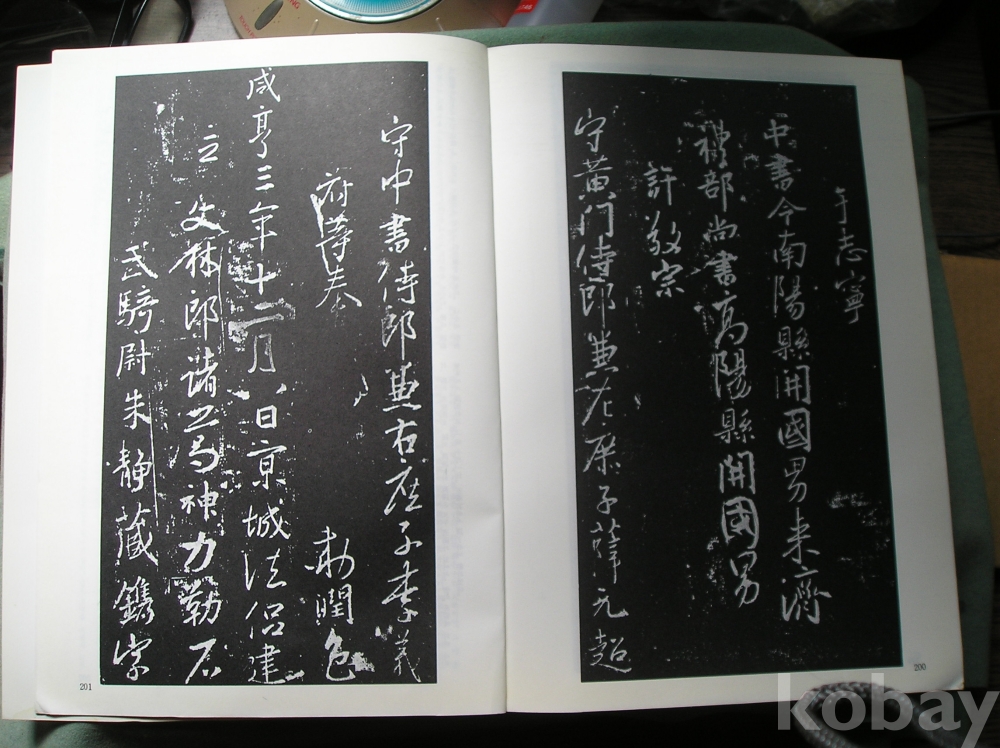 于志寧
中書令南陽縣開國男来濟
禮部尚書高陽縣開國男
許敬宗
守黄门侍郎兼左庶子薛元超
200
守中書侍郎兼右庶子李義
府等奉
勅潤色
咸亨三年十二月八日京城法侣建
立
文林郎诸葛神力勒石
武騎尉朱静藏鐫字
201
kobay